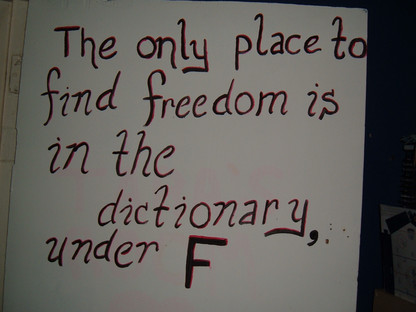 The only place to
find freedom is
in the
dictionary,
under F